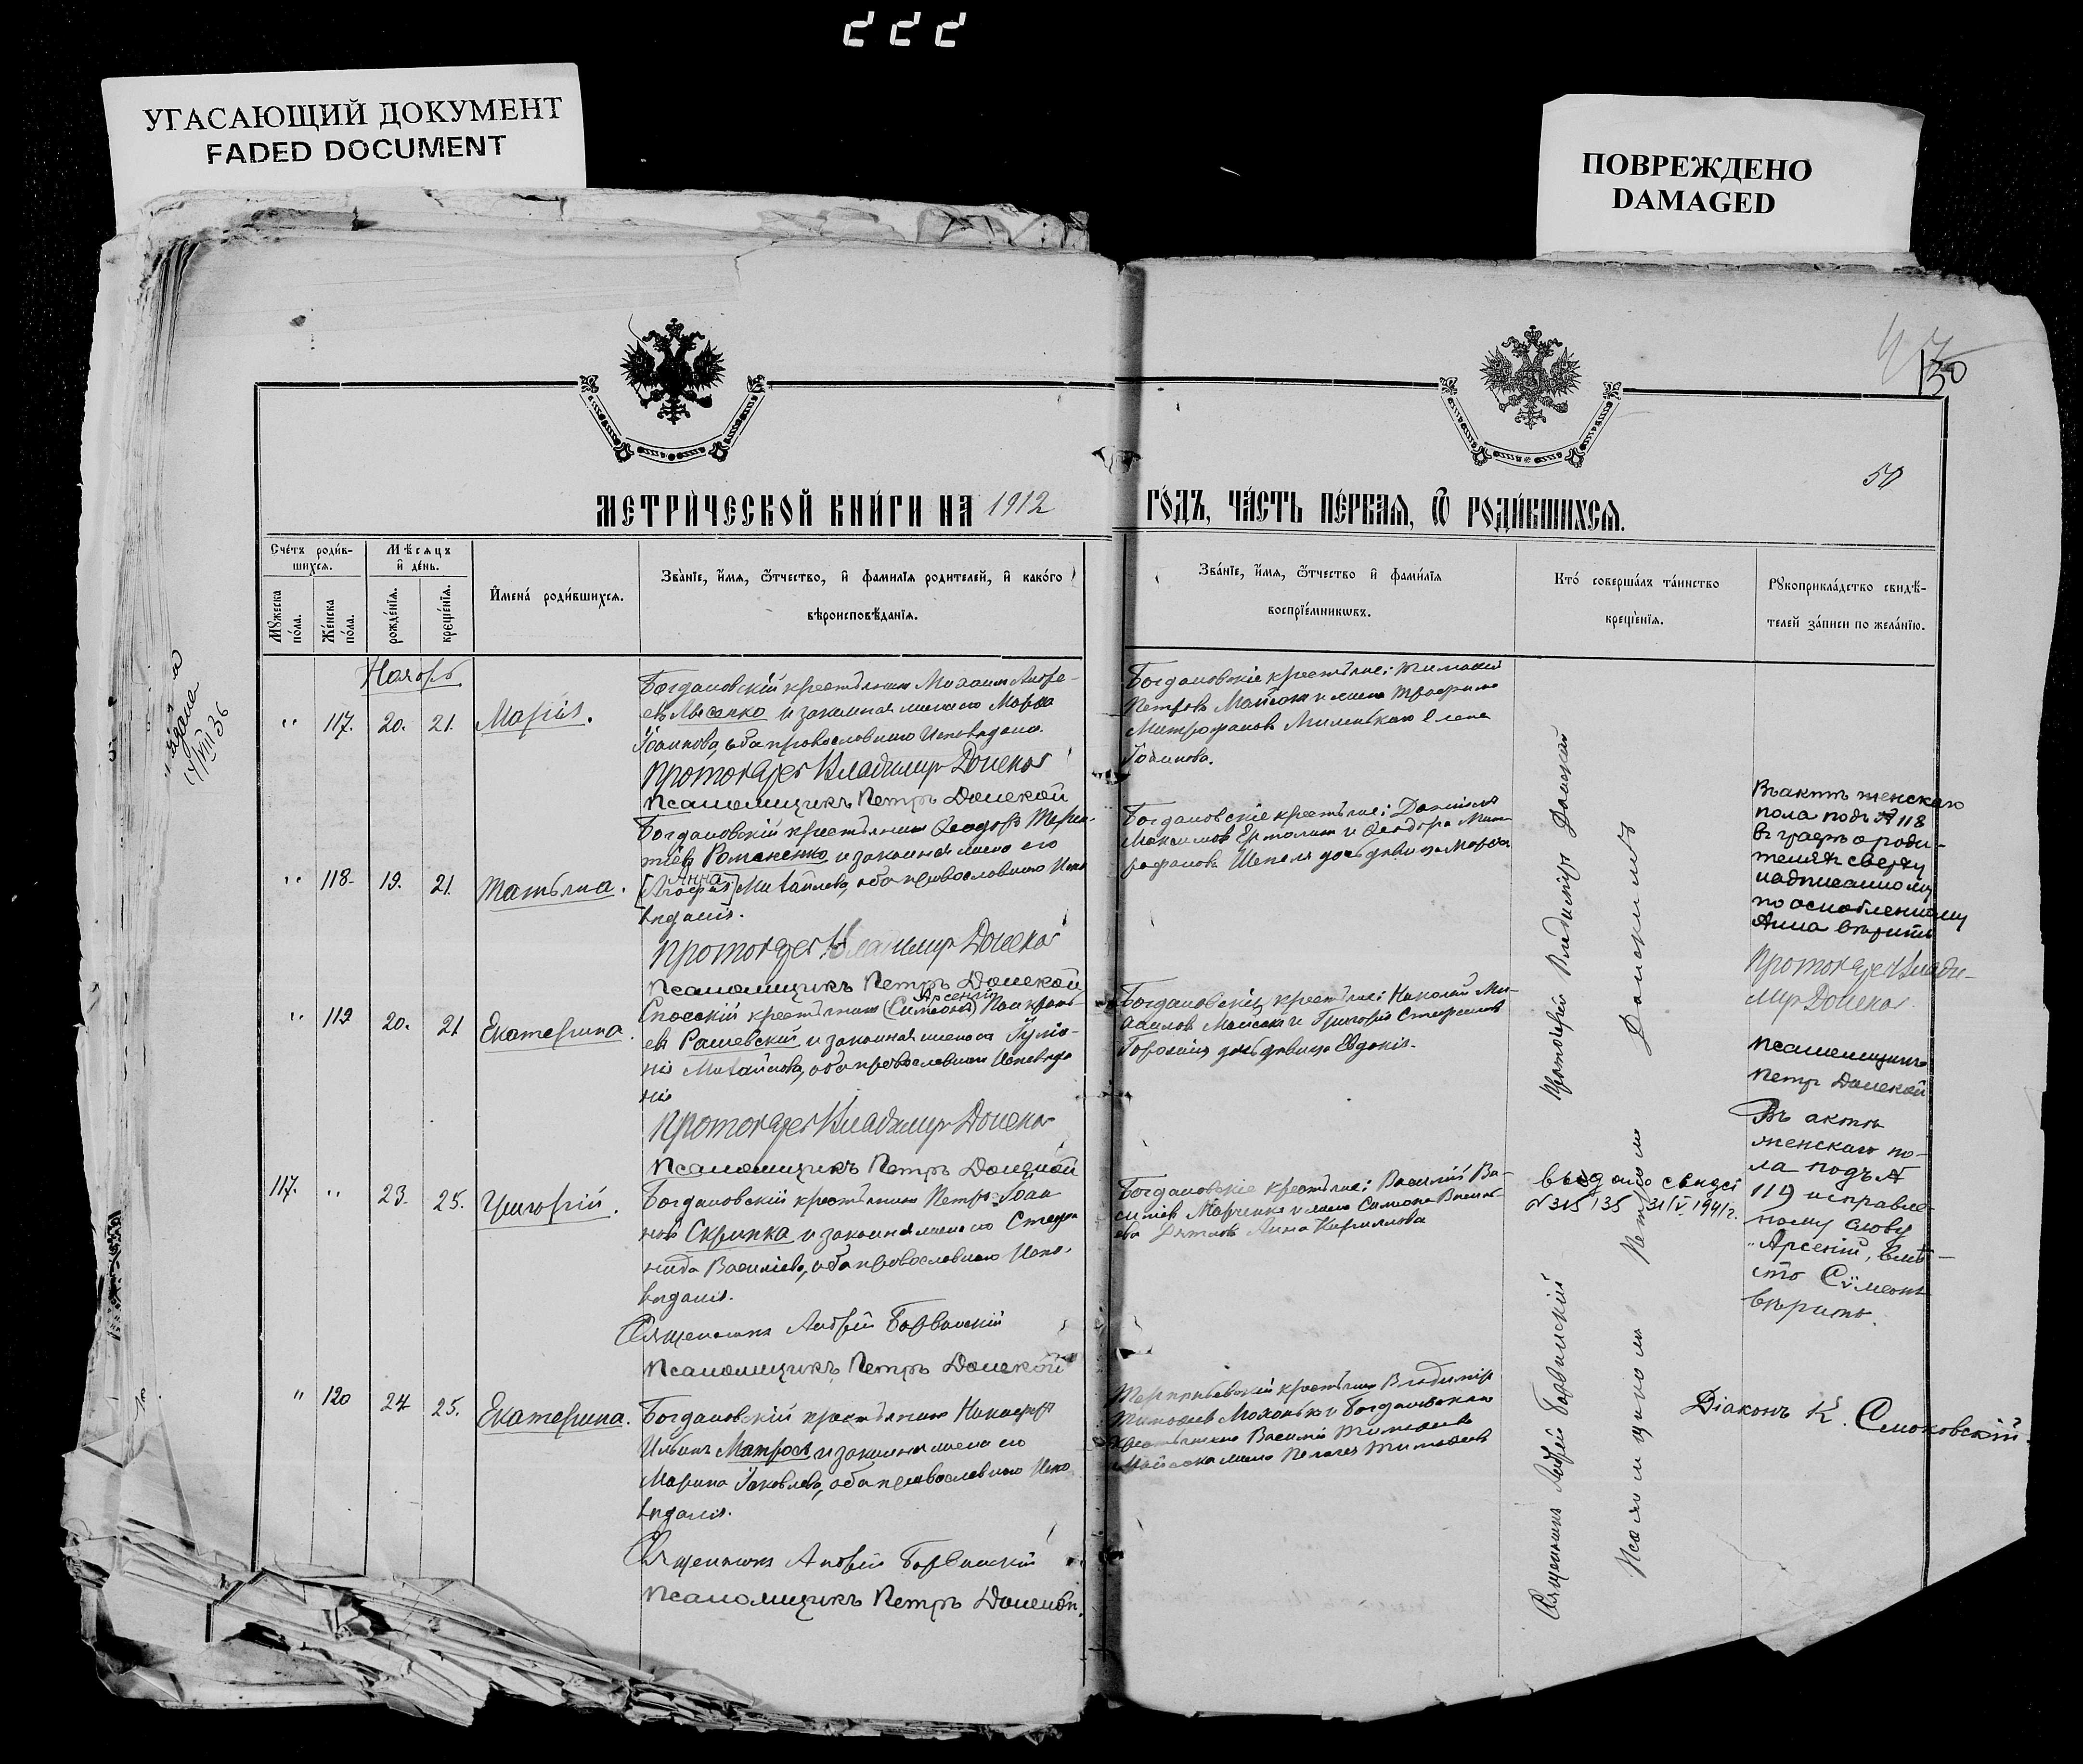 222
УГАСАЮЩИЙ ДОКУМЕНТ
FADED DOCUMENT
ПОВРЕЖДЕНО
DAMAGED
130
50
МЕТРИ́ЧЕСКОЙ КНИ́ГИ НА 1912
ГО́ДЪ, ЧА́СТЬ ПЕ́РВАЯ, Ѿ РОДИ́ВШИХСЯ.
Сче́тъ роди́в-
шихся.
Мꙋжеска по́ла.
Же́нска по́ла.
Мѣсяцъ
и҆ де́нь.
рожде́нїя.
креще́нїя.
И҆мена̀ роди́вшихся.
Зва́нїе, и҆́мя, ѻ҆́тчество, и҆ фамилїя родителей, и҆ како́го
вѣроисповѣ́данїя.
Зва́нїе, и҆́мя, ѻ҆́тчество и҆ фами́лїя
воспрїе́мникωвъ.
Кто̀ соверша́лъ та́инство
креще́нїя.
Рꙋкоприкла́дство свидѣ́-
телей за́писи по жела́нїю.
Ноябрь
" 117. 20. 21. Марія.
Богдановскій крестьянинъ Михаилъ Андре-
евъ Лысенко и законная жена его Марѳа
Іоаннова, оба православнаго исповѣданія.
Протоіерей Владиміръ Донской
Псаломщикъ Петръ Донской
Богдановскіе крестьяне: Тимоѳей
Петровъ Майсюкъ и жена Трофима
Митрофанова Миленькаго Елена
Іоаннова.
" 118. 19. 21. Татьяна.
Богдановскій крестьянинъ Ѳеодоръ Терен-
тіевъ Романенко и законная жена его
Анна
[Агафія] Михайлова, оба православнаго испо
вѣданія.
Протоіерей Владиміръ Донской
Псаломщикъ Петръ Донской
Богдановскіе крестьяне: Даніилъ
Максимовъ Ермолинъ и Ѳеодора Мит-
рофанова Шепеля дочь дѣвица Марѳа
Въ актѣ женскаго
пола подъ № 118
въ графѣ о роди-
теляхъ сверху
надписанному
Анна вѣрить
Протоіерей Влади-
міръ Донской
Псаломщикъ
Петръ Донской
" 119 20. 21 Екатерина.
Арсеній
Спасскій крестьянинъ (Симеонъ) Панкрать-
евъ Рашевскій и законная жена его Іулiа-
нія Михайлова, оба православнаго исповѣда
нія
Протоіерей Владиміръ Донской
Псаломщикъ Петръ Донской
Богдановскіе крестьяне: Николай Ми-
хаиловъ Майсюкъ и Григорія Стефанова
дочь дѣвица Евдокія.
Въ актѣ
женскаго по-
ла подъ №
119 исправлен-
ному слову
"Арсеній" вмѣ-
сто Сѵмеонъ
вѣрить.
117. " 23. 25. Григорій.
Богдановскій крестьянинъ Петръ Іоан
новъ Скрипка и законная жена его Степа
нида Василіева, оба православнаго испо-
вѣданія.
Священникъ Андрей Борвинскій
Псаломщикъ Петръ Донской
Богдановскіе крестьяне: Василій Ва-
силіевъ Марченко и жена Симеона Василь-
ева Дятлова Анна Кириллова
выдано свидет
№ 315 135 31/V 1941 г.
" 120 24 25. Екатерина.
Богдановскій крестьянинъ Никифоръ
Ильинъ Матросъ и законная жена его
Марина Іаковлева, оба православнаго испо
вѣданія.
Священникъ Андрей Борвинскій
Псаломщикъ Петръ Донской.
крестьянинъ Владиміръ
Тимоѳеевъ и Богдановскаго
крестьянина Василія Тимоѳеева
Майсюка жена Пелагея Тимоѳеева
Діаконъ К. Смоковскій.
Протоіерей Владиміръ Донской
Священникъ Андрей Борвинскій
Псаломщикомъ Петромъ Донскимъ